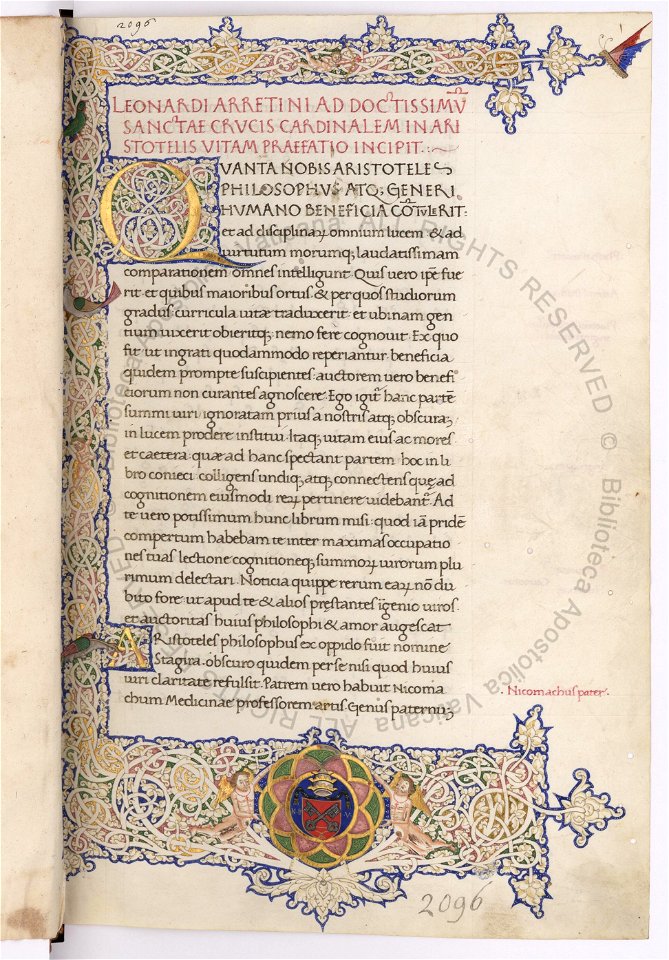 2096
LEONARDI ARRETINI AD DOCTISSIMŪ
SANCTAE CRVCIS CARDINALEM IN ARI
STOTELIS VITAM PRAEFATIO INCIPIT.
QVANTA NOBIS ARISTOTELES
PHILOSOPHVS ATQ; GENERI
HVMANO BENEFICIA CŌTVLERIT:
et ad disciplinaꝝ omnium lucem & ad
uirtutum morumq; laudatissimam
comparationem omnes intelligunt. Quis uero ip̄e fue
rit et quibus maioribus ortus & per quos studiorum
gradus curricula uitae traduxerit et ubinam gen
tium uixerit obieritq; nemo fere cognouit. Ex quo
fit ut ingrati quodammodo reperiantur beneficia
quidem prompte suscipientes: auctorem uero benefi
ciorum non curantes agnoscere. Ego igit̄ hanc partē
summi uiri ignoratam prius a nostris atq; obscurā
in lucem prodere institui. Itaq; uitam eius ac mores
et caetera quae ad hanc spectant partem hoc in li
bro conieci colligens undiq; atq; connectens quę ad
cognitionem eiusmodi reꝝ pertinere uidebant̄. Ad
te uero potissimum hunc librum misi: quod iā pridē
compertum habebam te inter maximas occupatio
nes tuas lectione cognitioneq; summoꝝ uirorum plu
rimum delectari. Noticia quippe rerum eaꝝ nō du
bito fore ut apud te & alios pręstantes īgenio uiros
et auctoritas huius philosophi & amor augescat
ARistoteles philosophus ex oppido fuit nomine
Stagira. obscuro quidem per se nisi quod huius
uiri claritate refulsit. Patrem uero habuit Nicoma
chum Medicinae professorem artis. Genus paternū
. Nicomachus pater.
2096
ALL RIGHTS RESERVED © Biblioteca Apostolica Vaticana ALL RIGHTS RESERVED © Biblioteca Apostolica Vaticana